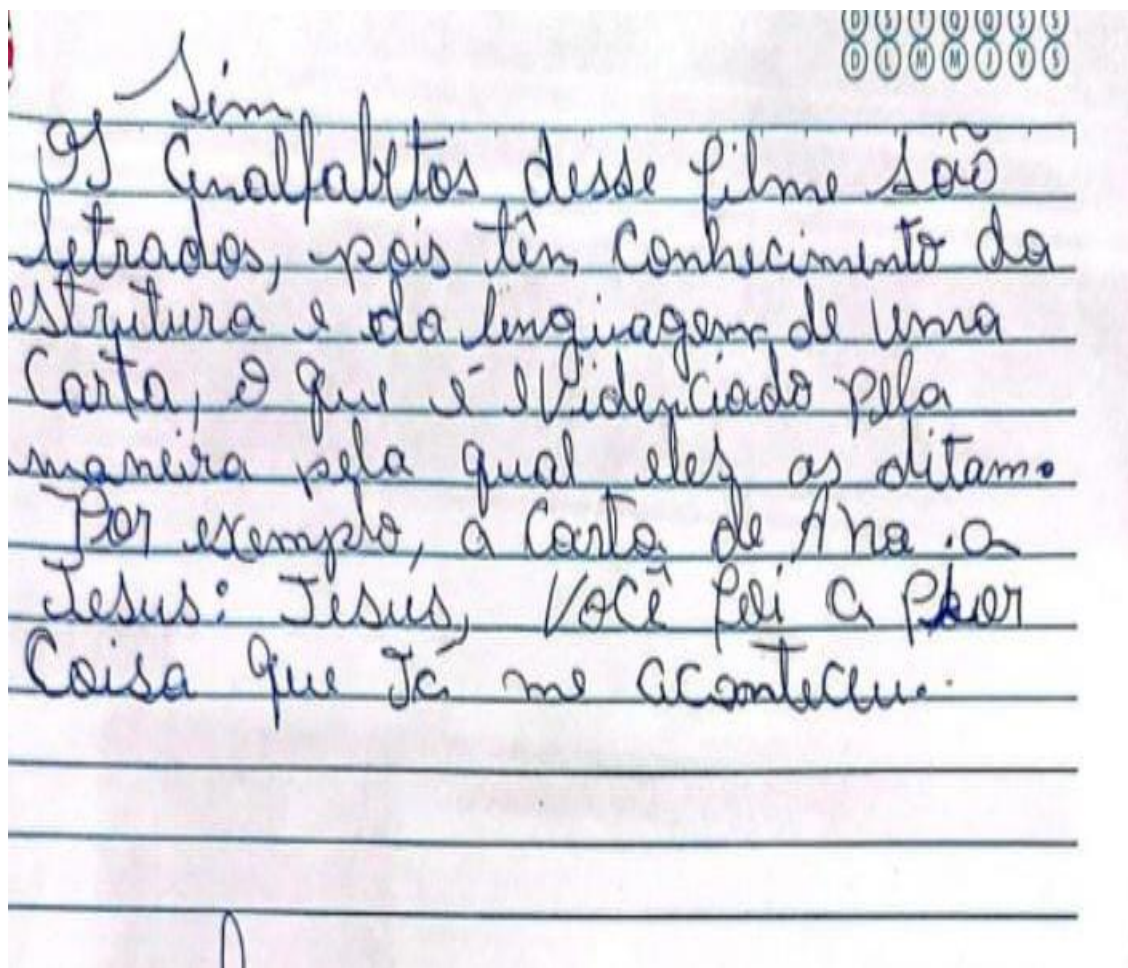 D S T Q Q S S
D L M M J V S
Sim
Os analfabetos desse filme são
letrados, pois têm conhecimento da
estrutura e da linguagem de uma
Carta, o que é evidenciado pela
maneira pela qual eles as ditam.
Por exemplo, a carta de Ana a
Jesus: Jesus, Você foi a pior
Coisa que Já me aconteceu.